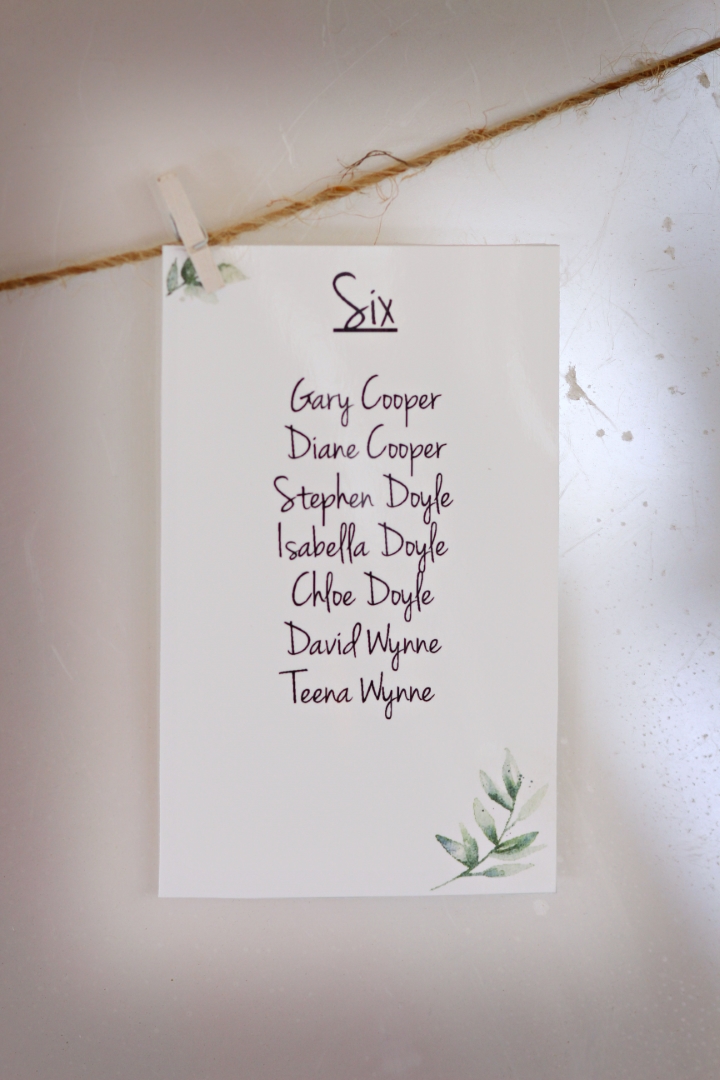 Six
Gary Cooper
Diane Cooper
Stephen Doyle
Isabella Doyle
Chloe Doyle
David Wynne
Teena Wynne